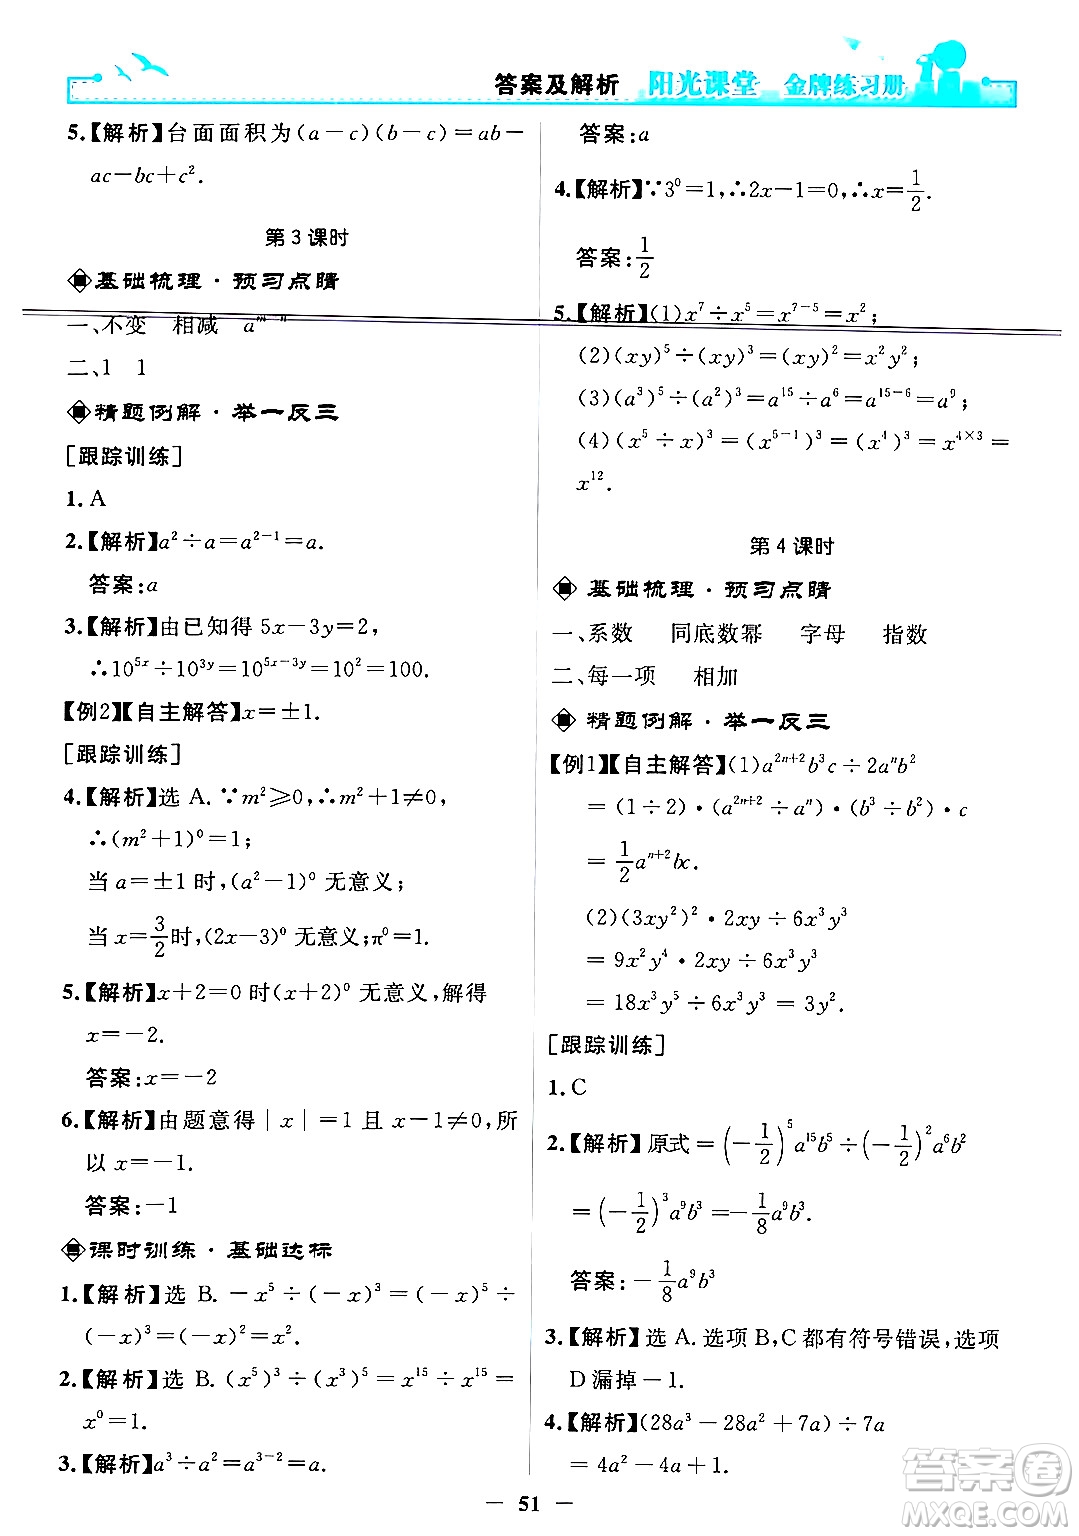 答案及解析 阳光课堂 金牌练习册
5.【解析】台面面积为(a－c)(b－c)＝ab－
ac－bc＋c².
第3课时
基础梳理·预习点睛
一、不变 相减 aᵐ⁻ⁿ
二、1 1
精题例解·举一反三
[跟踪训练]
1. A
2.【解析】a²÷a＝a²⁻¹＝a.
答案:a
3.【解析】由已知得 5x－3y＝2，
∴10⁵ˣ÷10³ʸ＝10⁵ˣ⁻³ʸ＝10²＝100.
【例2】【自主解答】x＝±1.
[跟踪训练]
4.【解析】选 A.∵m²≥0，∴m²＋1≠0，
∴(m²＋1)⁰＝1；
当 a＝±1 时，(a²－1)⁰ 无意义；
当 x＝3/2时，(2x－3)⁰ 无意义；π⁰＝1.
5.【解析】x＋2＝0 时(x＋2)⁰ 无意义，解得
x＝－2.
答案:x＝－2
6.【解析】由题意得|x|＝1 且 x－1≠0，所
以 x＝－1.
答案:－1
课时训练·基础达标
1.【解析】选 B.－x⁵÷(－x)³＝(－x)⁵÷
(－x)³＝(－x)²＝x².
2.【解析】选 B.(x⁵)³÷(x³)⁵＝x¹⁵÷x¹⁵＝
x⁰＝1.
3.【解析】a³÷a²＝a³⁻²＝a.
答案:a
4.【解析】∵3⁰＝1，∴2x－1＝0，∴x＝1/2.
答案:1/2
5.【解析】(1)x⁷÷x⁵＝x⁷⁻⁵＝x²；
(2)(xy)⁵÷(xy)³＝(xy)²＝x²y²；
(3)(a³)⁵÷(a²)³＝a¹⁵÷a⁶＝a¹⁵⁻⁶＝a⁹；
(4)(x⁵÷x)³＝(x⁵⁻¹)³＝(x⁴)³＝x⁴ˣ³＝
x¹².
第4课时
基础梳理·预习点睛
一、系数 同底数幂 字母 指数
二、每一项 相加
精题例解·举一反三
【例1】【自主解答】(1)a²ⁿ⁺²b³c÷2aⁿb²
＝(1÷2)·(a²ⁿ⁺²÷aⁿ)·(b³÷b²)·c
＝1/2aⁿ⁺²bc.
(2)(3xy²)²·2xy÷6x³y³
＝9x²y⁴·2xy÷6x³y³
＝18x³y⁵÷6x³y³＝3y².
[跟踪训练]
1. C
2.【解析】原式＝(－1/2)⁵a¹⁵b⁵÷(－1/2)²a⁶b²
＝(－1/2)³a⁹b³＝－1/8a⁹b³.
答案:－1/8a⁹b³
3.【解析】选 A.选项 B，C 都有符号错误，选项
D 漏掉－1.
4.【解析】(28a³－28a²＋7a)÷7a
＝4a²－4a＋1.
— 51 —
答案圈
MXQE.COM